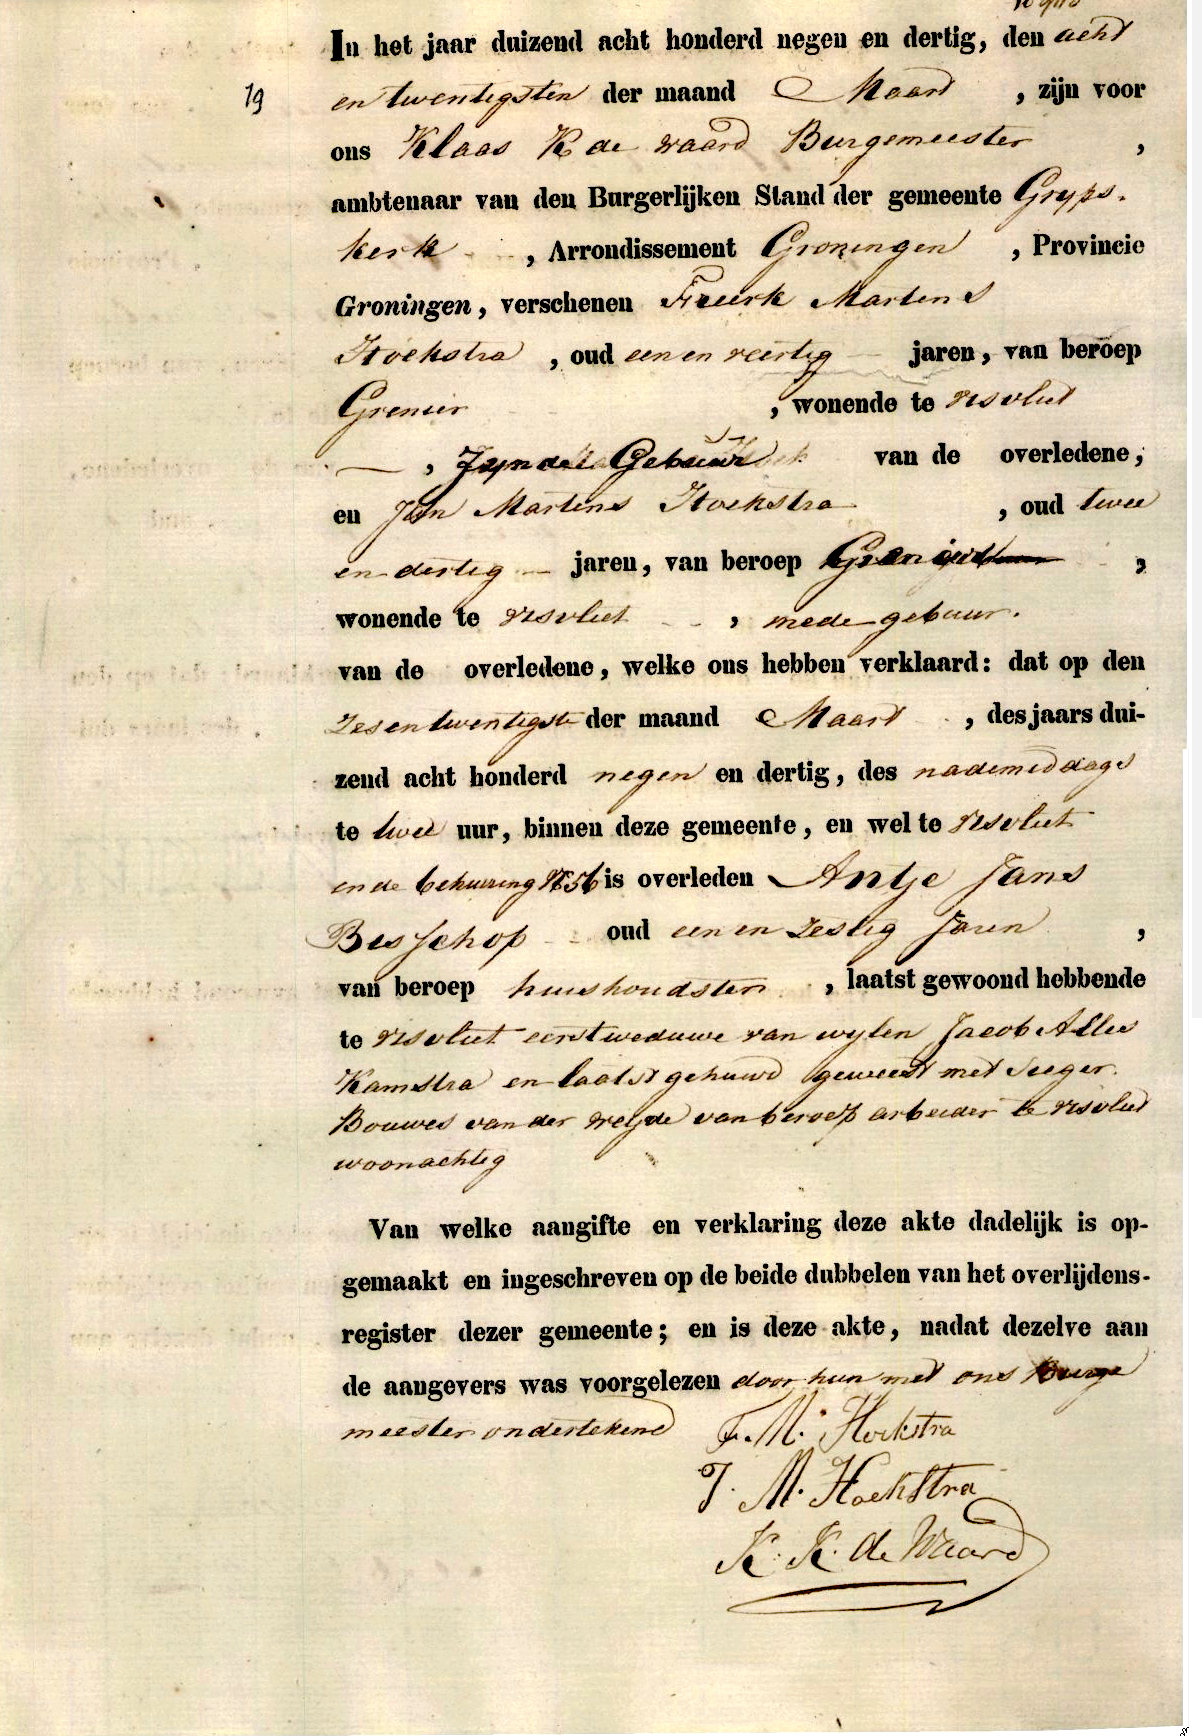 In het jaar duizend acht honderd negen en dertig, den acht
19
en twentigsten der maand Maart , zijn voor
ons Klaas K de Waard Burgemeester ,
ambtenaar van den Burgerlijken Stand der gemeente Gryps-
kerk , Arrondissement Groningen , Provincie
Groningen, verschenen Freerk Martens
Hoekstra , oud een en veertig jaren, van beroep
Grenier , wonende te Visvliet
, Zynde Gebuur van de overledene,
en Jan Martens Hoekstra , oud twee
en dertig jaren, van beroep ,
wonende te Visvliet , mede gebuur.
van de overledene, welke ons hebben verklaard: dat op den
zesentwentigste der maand Maart , des jaars dui-
zend acht honderd negen en dertig, des nademiddags
te twee uur, binnen deze gemeente, en wel te Visvliet
in de behuizing N 56 is overleden Antje Jans
Besschop oud een en zestig Jaren ,
van beroep huishoudster , laatst gewoond hebbende
te Visvliet eerst weduwe van wylen Jacob Alles
Kamstra en laatst gehuwd geweest met Seeger
Bouwes van der Weijde van beroep arbeider te Visvliet
woonachtig
Van welke aangifte en verklaring deze akte dadelijk is op-
gemaakt en ingeschreven op de beide dubbelen van het overlijdens-
register dezer gemeente; en is deze akte, nadat dezelve aan
de aangevers was voorgelezen door hun met ons Burge
meester ondertekend F. M. Hoekstra
J. M. Hoekstra
K. K. de Waard